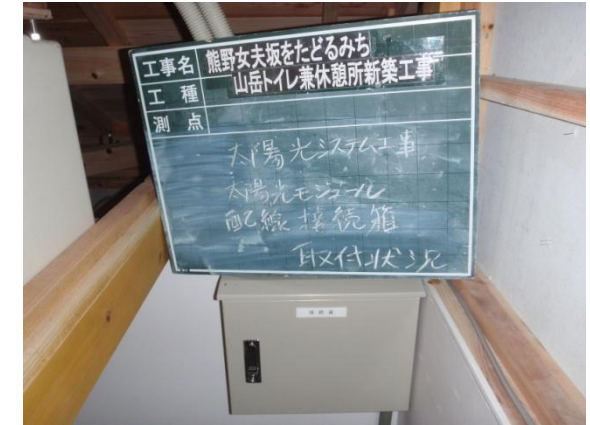 工事名 熊野女夫坂をたどるみち
山岳トイレ兼休憩所新築工事
工種
測点
太陽光システム工事
太陽光モジュール
配線接続箱
取付状況
接続箱